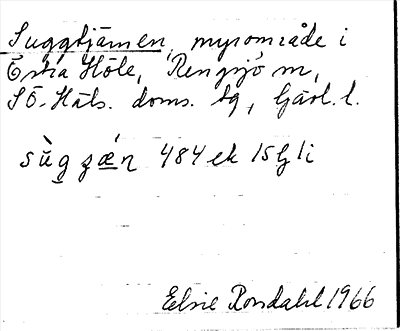 Suggtjärnen, myrområde i
Östra Höle, Rengsjö sn,
SÖ. Häls. doms. sg, Gävl. l.
sùgzǽn 484 ek 15G 1i
Elsie Rondahl 1966